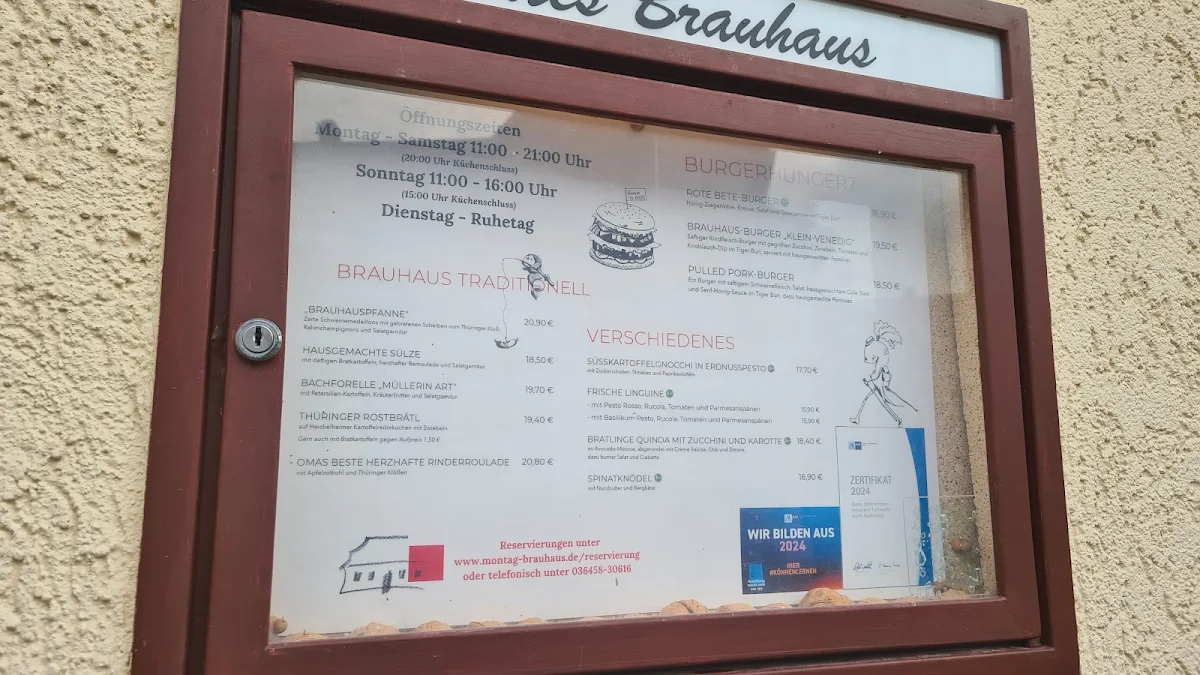 Brauhaus
Öffnungszeiten
Montag - Samstag 11:00 - 21:00 Uhr
(20:00 Uhr Küchenschluss)
Sonntag 11:00 - 16:00 Uhr
(15:00 Uhr Küchenschluss)
Dienstag - Ruhetag
BRAUHAUS TRADITIONELL
„BRAUHAUSPFANNE“ 20,90 €
Zarte Schweinemedaillons mit gebratenen Scheiben vom Thüringer Kloß,
Rahmchampignons und Salatgarnitur
HAUSGEMACHTE SÜLZE 18,50 €
mit deftigen Bratkartoffeln, herzhafter Remoulade und Salatgarnitur
BACHFORELLE „MÜLLERIN ART“ 19,70 €
mit Petersilien-Kartoffeln, Kräuterbutter und Salatgarnitur
THÜRINGER ROSTBRÄTL 19,40 €
auf Heichelheimer Kartoffelreibekuchen mit Zwiebeln
Gern auch mit Bratkartoffeln gegen Aufpreis 1,50 €
OMAS BESTE HERZHAFTE RINDERROULADE 20,80 €
mit Apfelrotkohl und Thüringer Klößen
BURGERHUNGER?
ROTE BETE-BURGER 16,90 €
Honig-Ziegenkäse, Kresse, Salat und Guacamole im Tiger Bun
BRAUHAUS-BURGER „KLEIN-VENEDIG“ 19,50 €
Saftiger Rindfleisch-Burger mit gegrillten Zucchini, Zwiebeln, Tomaten und
Knoblauch-Dip im Tiger Bun, serviert mit hausgemachten Pommes
PULLED PORK-BURGER 18,50 €
Ein Burger mit saftigem Schweinefleisch, Salat, hausgemachtem Cole Slaw
und Senf-Honig-Sauce im Tiger Bun, dazu hausgemachte Pommes
VERSCHIEDENES
SÜSSKARTOFFELGNOCCHI IN ERDNUSSPESTO 17,70 €
mit Zuckerschoten, Shitakes und Paprikawürfeln
FRISCHE LINGUINE
- mit Pesto Rosso, Rucola, Tomaten und Parmesanspänen 15,90 €
- mit Basilikum-Pesto, Rucola, Tomaten und Parmesanspänen 15,90 €
BRATLINGE QUINOA MIT ZUCCHINI UND KAROTTE 18,40 €
an Avocado-Mousse, abgerundet mit Crème fraîche, Chili und Zitrone,
dazu bunter Salat und Ciabatta
SPINATKNÖDEL 16,90 €
mit Nussbutter und Bergkäse
Reservierungen unter
www.montag-brauhaus.de/reservierung
oder telefonisch unter 036458-30616
WIR BILDEN AUS
2024
HIER
#KÖNNENLERNEN
ZERTIFIKAT
2024